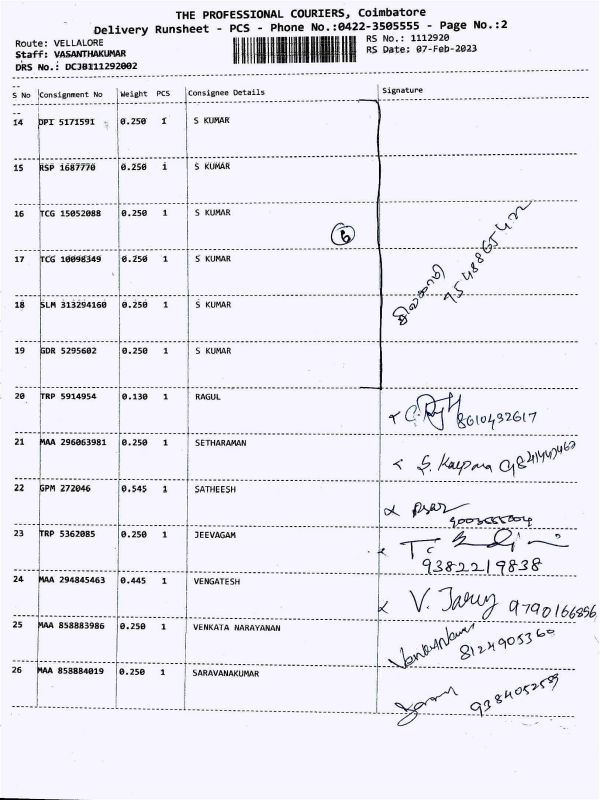 THE PROFESSIONAL COURIERS, Coimbatore
Delivery Runsheet - PCS - Phone No.:0422-3505555 - Page No.:2
Route: VELLALORE
RS No.: 1112920
Staff: VASANTHAKUMAR
RS Date: 07-Feb-2023
DRS No.: DCJB111292002
S No Consignment No Weight PCS Consignee Details Signature
14 DPI 5171591 0.250 1 S KUMAR
15 RSP 1687770 0.250 1 S KUMAR
16 TCG 15052088 0.250 1 S KUMAR
6
17 TCG 10098349 0.250 1 S KUMAR
18 SLM 313294160 0.250 1 S KUMAR
19 GDR 5295602 0.250 1 S KUMAR
20 TRP 5914954 0.130 1 RAGUL
8610492617
21 MAA 296063981 0.250 1 SETHARAMAN
S. Kalpana
22 GPM 272046 0.545 1 SATHEESH
23 TRP 5362085 0.250 1 JEEVAGAM
9382219838
24 MAA 294845463 0.445 1 VENGATESH
V. 9790166896
25 MAA 858883986 0.250 1 VENKATA NARAYANAN
8124905360
26 MAA 858884019 0.250 1 SARAVANAKUMAR